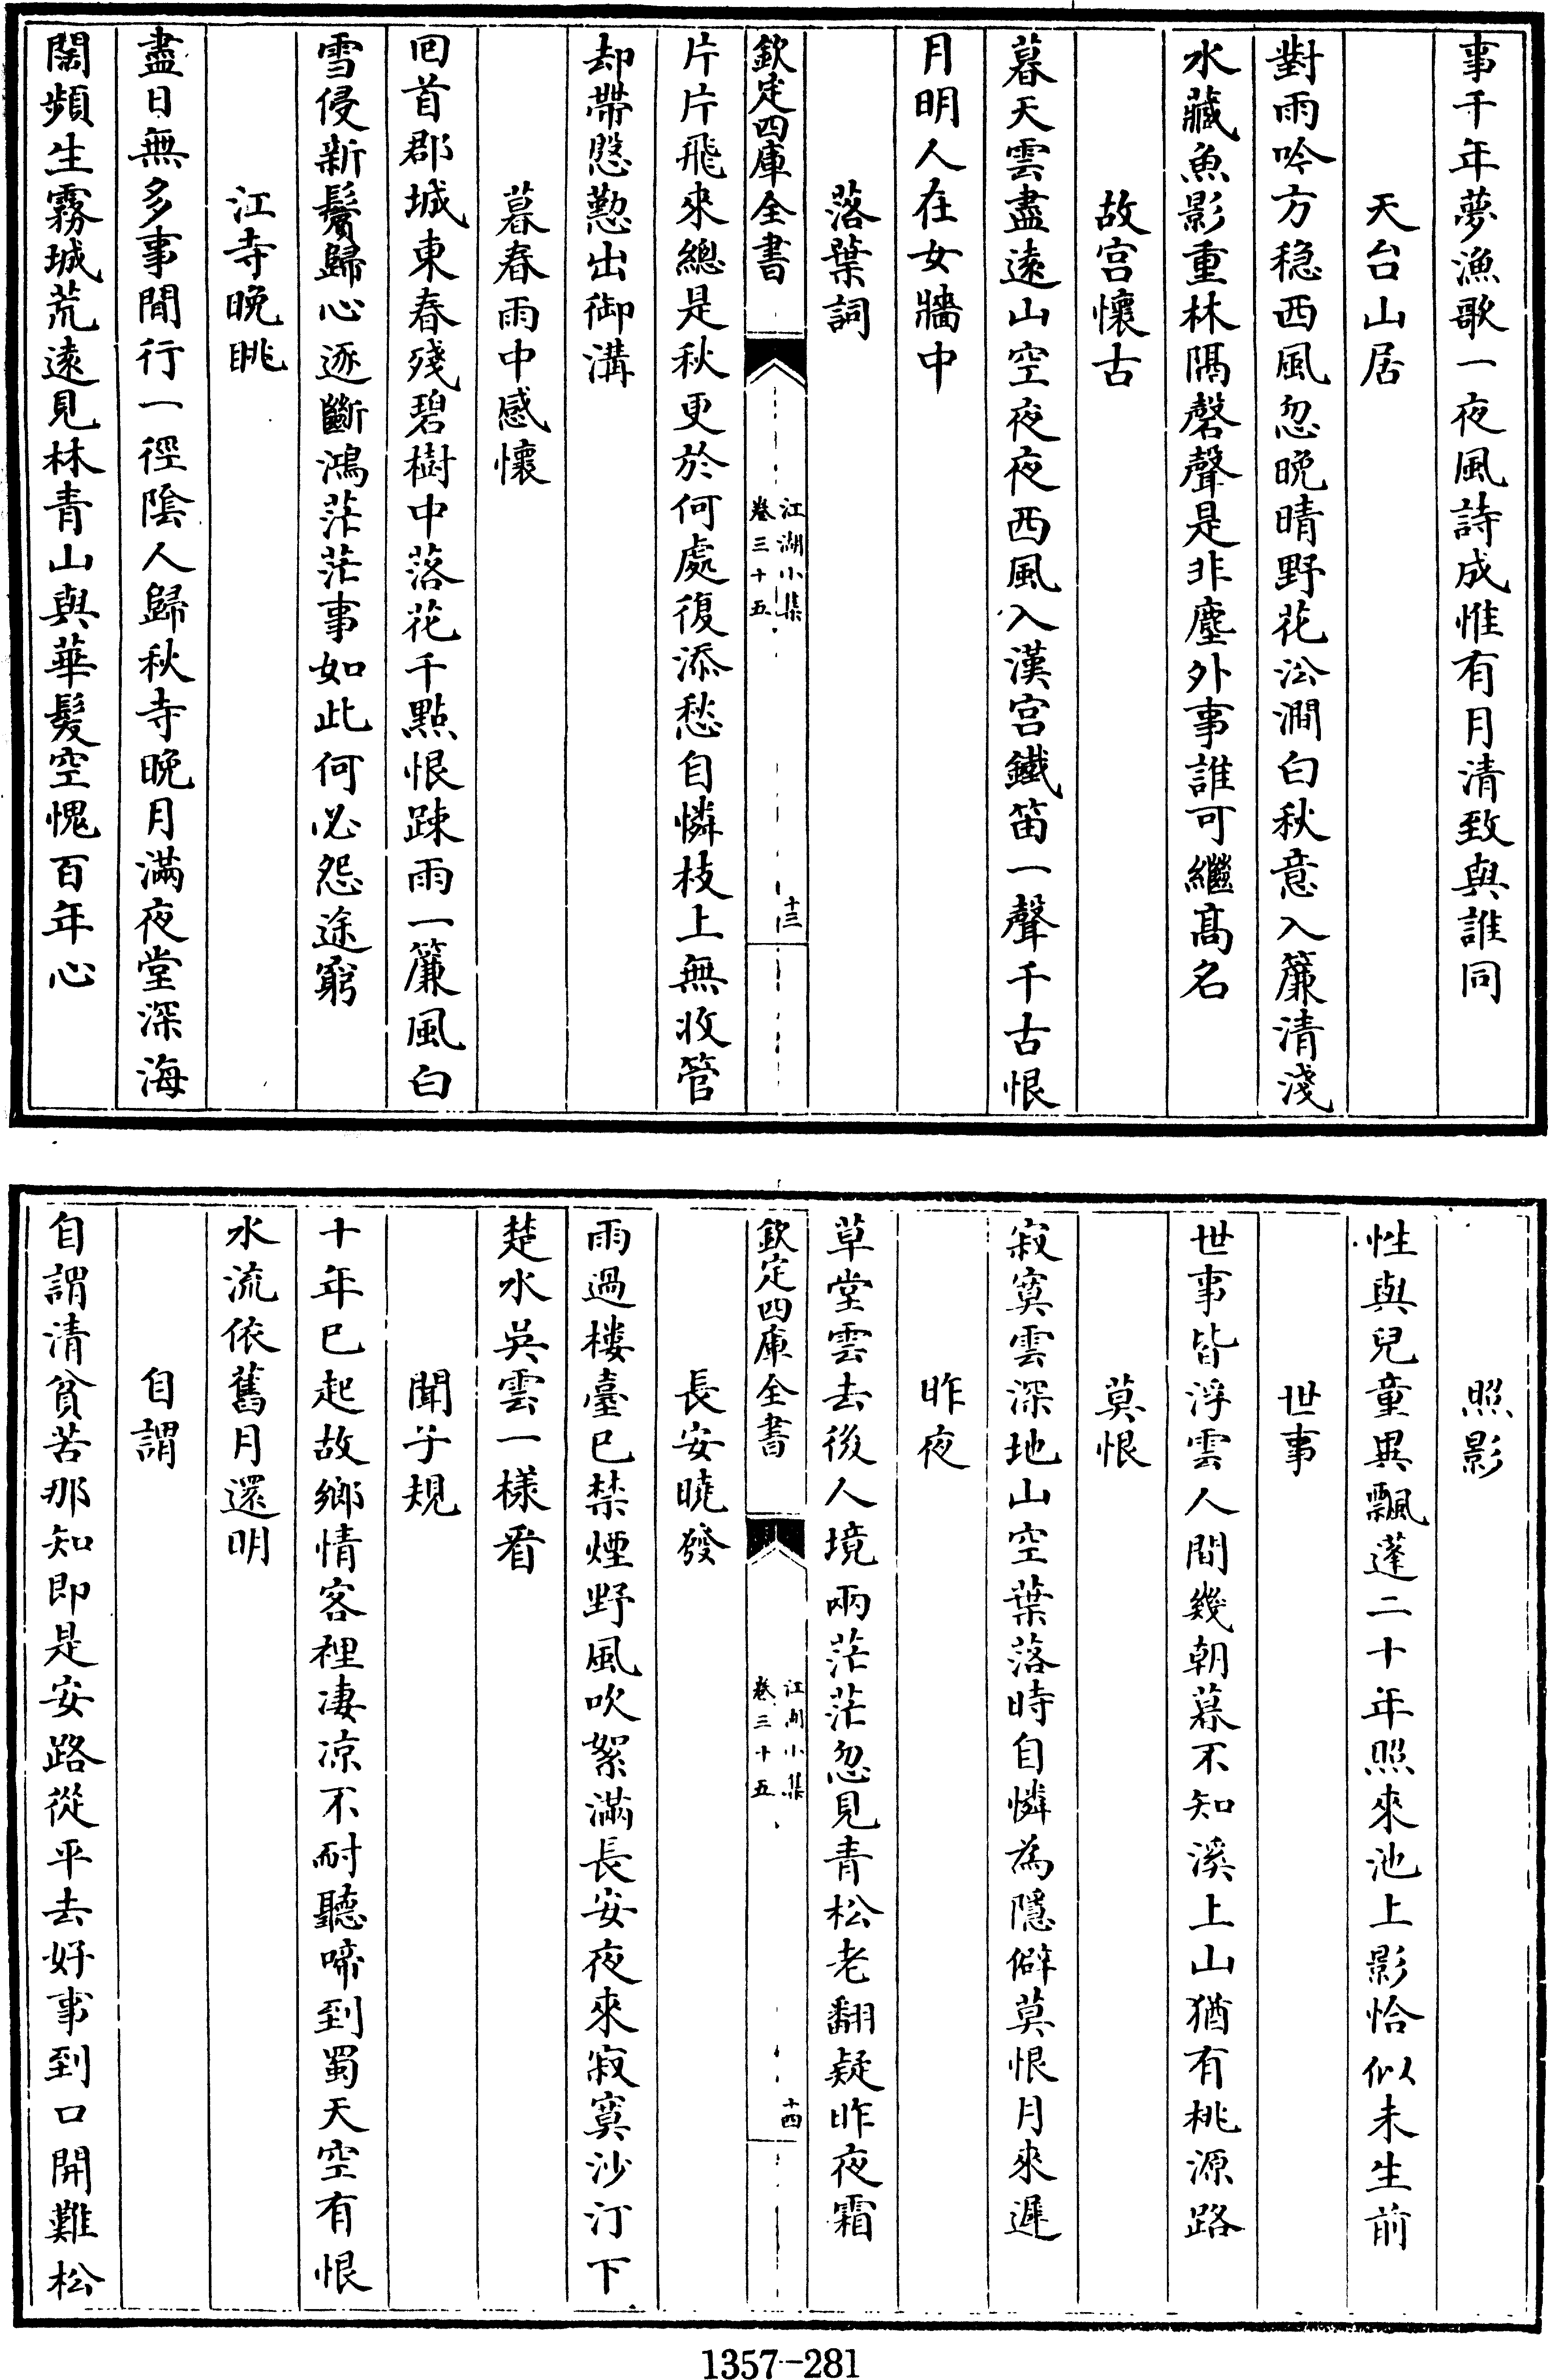 事千年夢漁歌一夜風詩成惟有月清致與誰同
天台山居
對雨吟方穏西風忽晚晴野花㳂澗白秋意入簾清淺
水藏魚影重林隔磬聲是非塵外事誰可繼髙名
故宫懷古
暮天雲盡遠山空夜夜西風入漢宫鐵笛一聲千古恨
月明人在女牆中
落葉詞
欽定四庫全書
江湖小集
卷三十五
十三
片片飛來總是秋更於何處復添愁自憐枝上無收管
却帶慇懃出御溝
暮春雨中感懷
囘首郡城東春殘碧樹中落花千點恨踈雨一簾風白
雪侵新鬢歸心逐斷鴻茫茫事如此何必怨途窮
江寺晚眺
盡日無多事閒行一徑隂人歸秋寺晚月滿夜堂深海
闊頻生霧城荒遠見林青山與華髮空愧百年心
照影
性與兒童異飄蓬二十年照來池上影恰似未生前
世事
世事皆浮雲人間幾朝暮不知溪上山猶有桃源路
莫恨
寂寞雲深地山空葉落時自憐為隱僻莫恨月來遲
昨夜
草堂雲去後人境兩茫茫忽見青松老翻疑昨夜霜
欽定四庫全書
江湖小集
卷三十五
十四
長安曉發
雨過樓臺已禁煙野風吹絮滿長安夜來寂寞沙汀下
楚水吳雲一樣看
聞子規
十年已起故鄉情客裡凄凉不耐聽啼到蜀天空有恨
水流依舊月還明
自謂
自謂清貧苦那知即是安路從平去好事到口開難松
1357-281